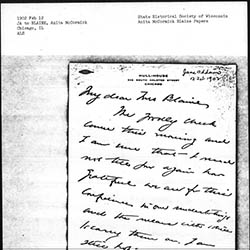 1902 Feb 12
JA to BLAINE, Anita McCormick
Chicago, IL
ALS
State Historical Society of Wisconsin
Anita McCormick Blaine Papers
HULL-HOUSE
335 SOUTH HALSTED STREET
CHICAGO
Jane Addams
My dear Mrs Blaine
The lovely check
came this morning and
I am sure that I need
not tell you again how
grateful we are for this
confidence in our undertakings
and the means with which
to carry them on. I am